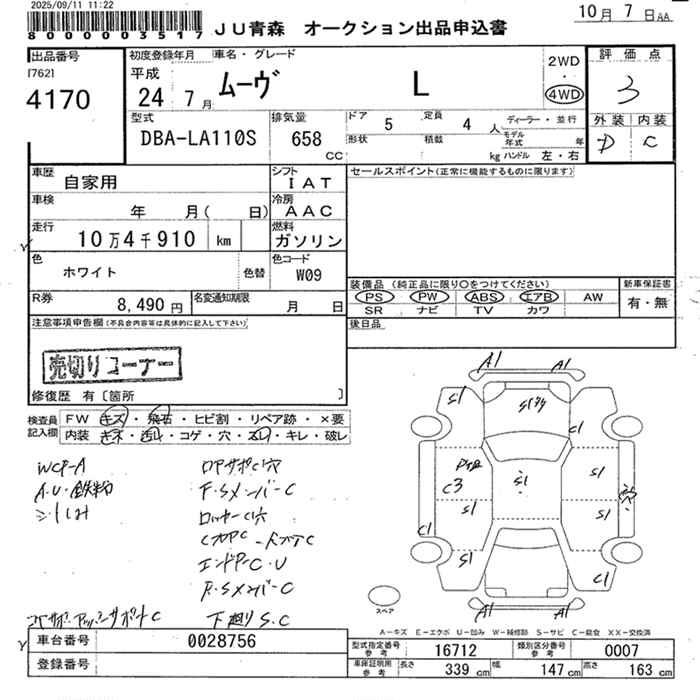 2025/09/11 11:22
8000003517
JU青森 オークション出品申込書
10月 7日AA
出品番号
[762]
4170
初度登録年月
平成
24 7月
車名・グレード
ムーヴ L
2WD
・
4WD
評価点
3
外装 内装
D C
型式
DBA-LA110S
排気量
658
CC
ドア 5
定員 4人
形状
積載 kg
ディーラー・並行
モデル年式 年
ハンドル 左・右
車歴
自家用
シフト
IAT
車検
年 月( 日)
冷房
AAC
走行
10万4千910 km
燃料
ガソリン
色
ホワイト
色替
色コード
W09
R券
8,490円
名変通知期限
月 日
セールスポイント(正常に機能するものに限ります)
装備品(純正品に限り○をつけてください)
PS PW ABS エアB AW
SR ナビ TV カワ
新車保証書
有・無
後日品
注意事項申告欄(不具合内容等は具体的に記入して下さい)
売切りコーナー
修復歴 有〔箇所 〕
検査員記入欄
FW キズ・飛石・ヒビ割・リペア跡・×要
内装 キズ・汚レ・コゲ・穴・スレ・キレ・破レ
WCP-A
A.U・鉄粉
シートしみ
ロアサポC穴
F・SメンバーC
ロッカーC穴
エンドP-C・U
R・SメンバーC
下廻りS.C
A1
A1
S1
C1
C3
S1
S1
S1
S1
S1
C1
S1
C1
A1
A1
スペア
A-キズ E-エクボ U-凹み W-補修跡 S-サビ C-腐食 XX-交換済
車台番号
0028756
登録番号
型式指定番号 参考
16712
類別区分番号 参考
0007
車庫証明用 参考
長さ 339cm
幅 147cm
高さ 163cm